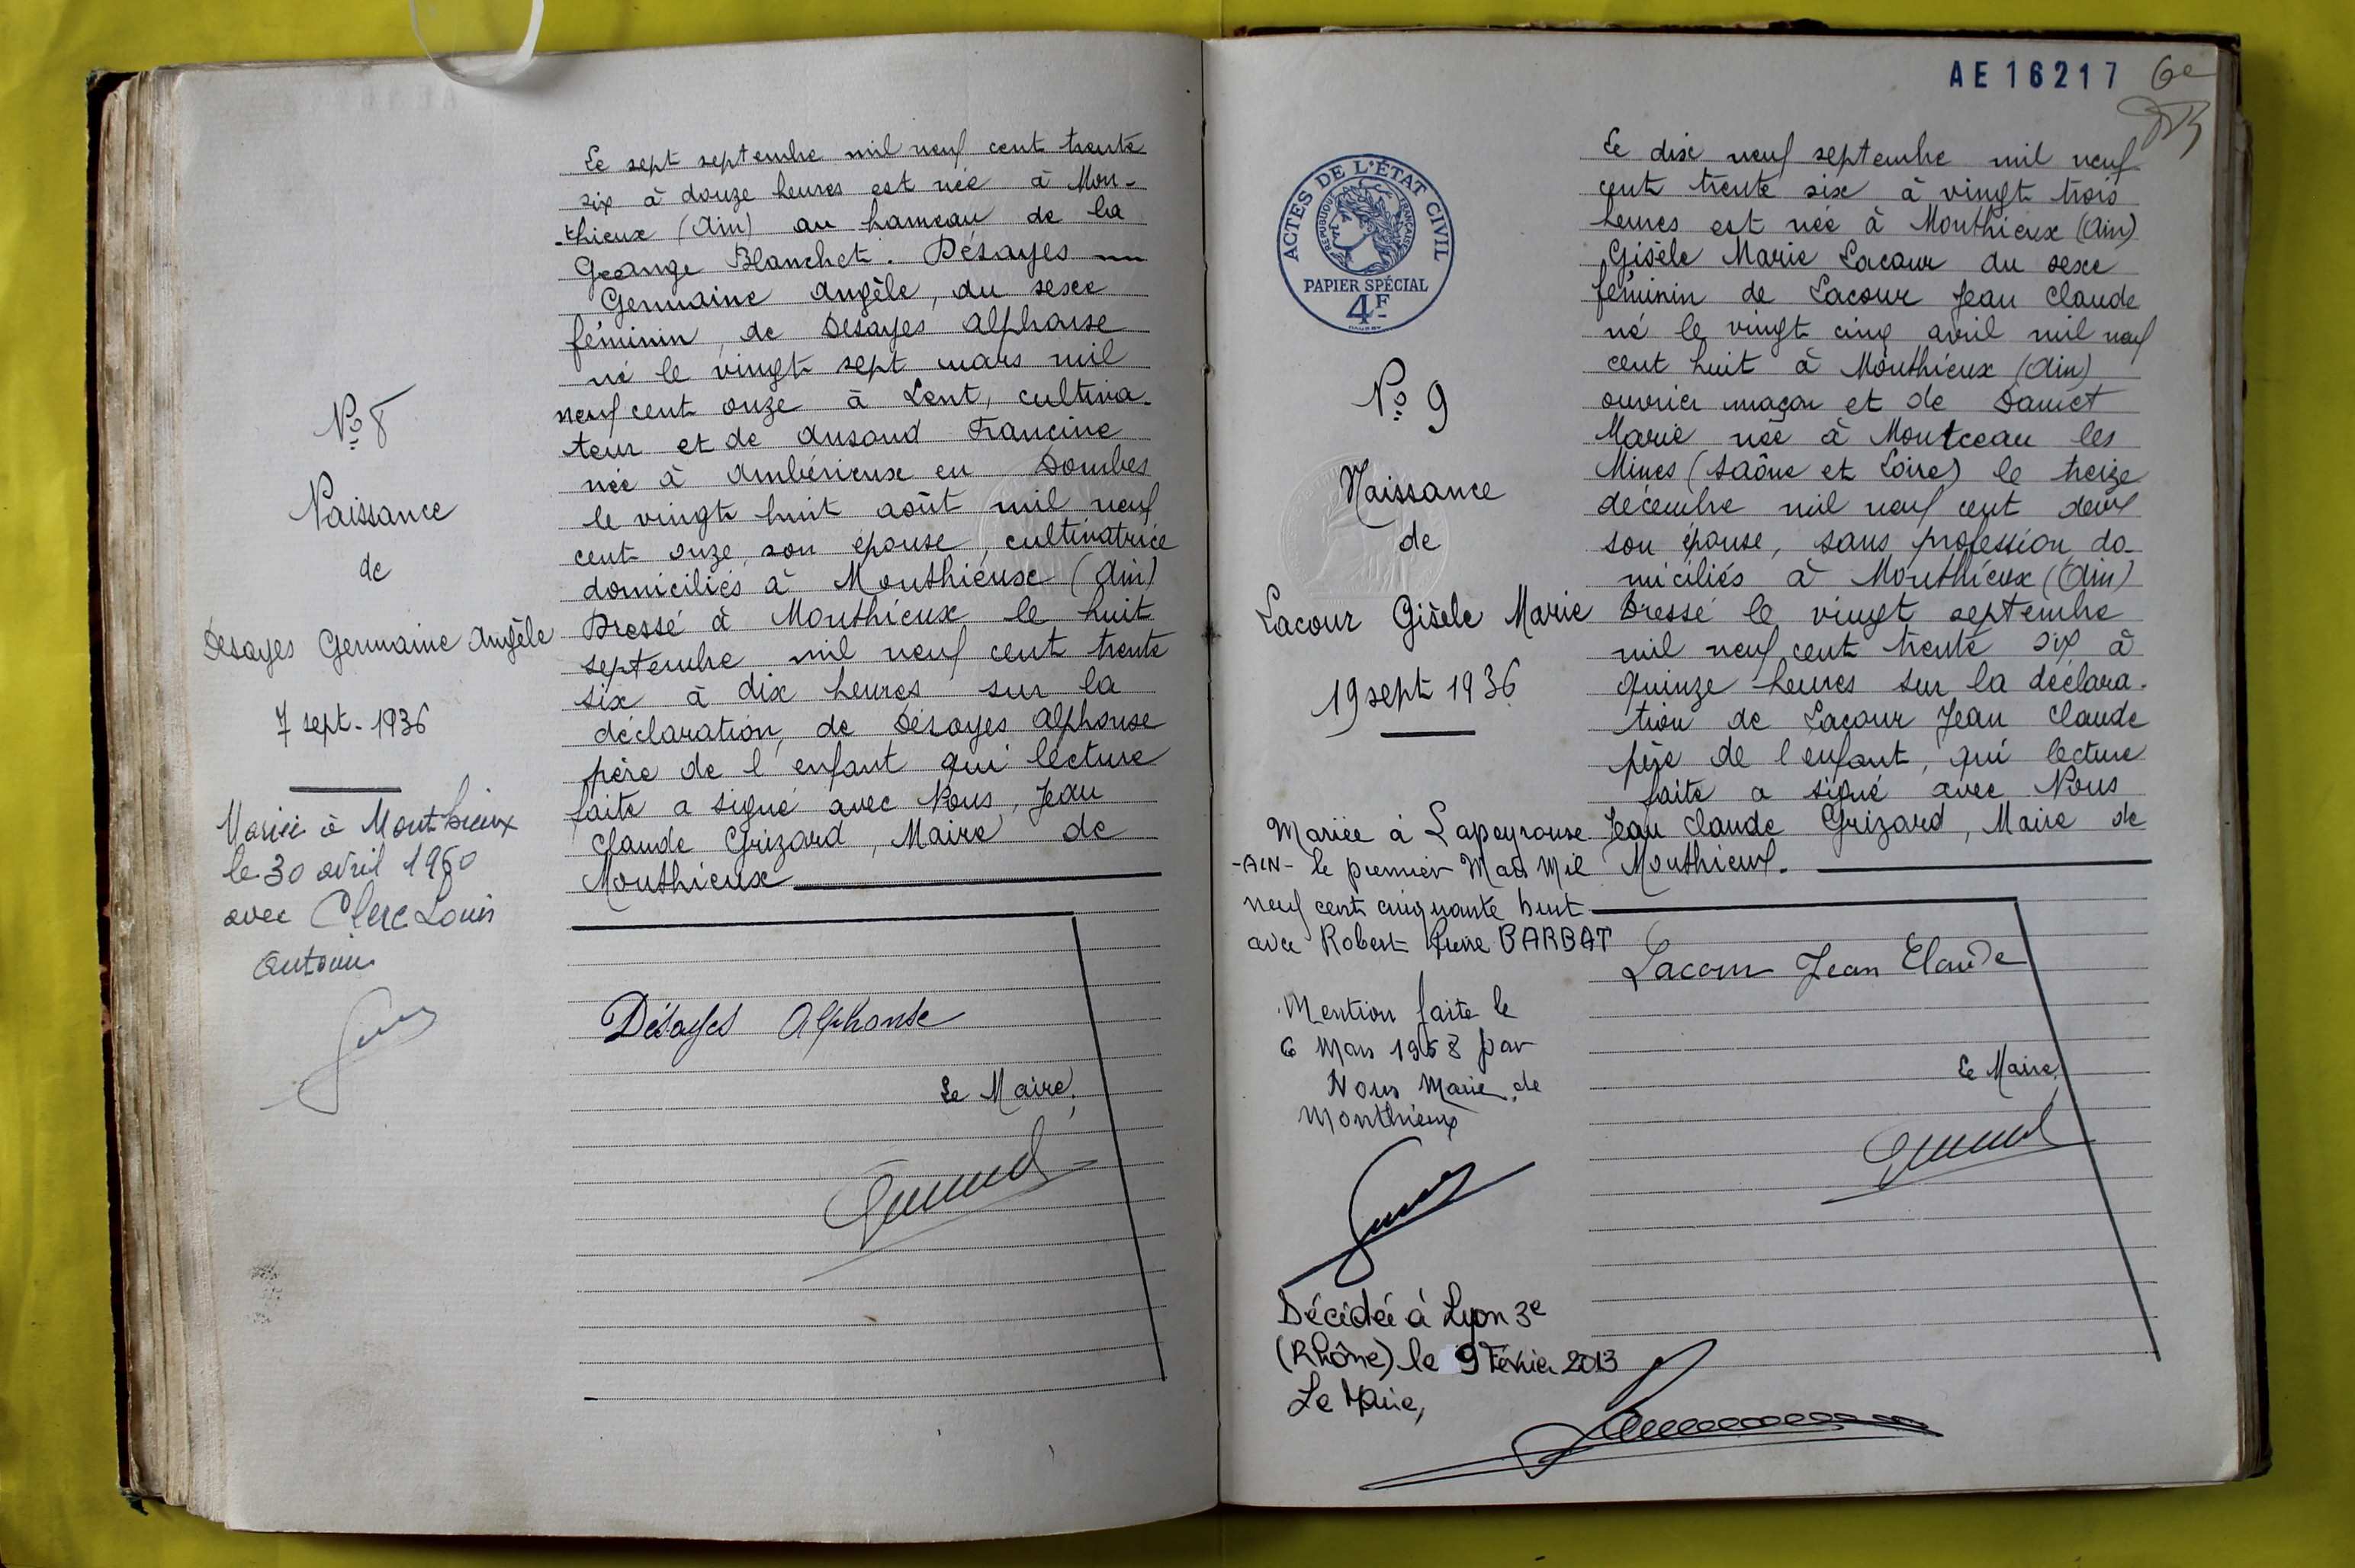 N° 8
Naissance
de
Désayes Germaine Angèle
7 sept. 1936
Mariée à Monthieux
le 30 avril 1960
avec Clerc Louis
Antoine
Le sept septembre mil neuf cent trente
six à douze heures est née à Mon-
-thieux (Ain) au hameau de la
Grange Blanchet. Désayes
Germaine Angèle, du sexe
féminin, de Désayes Alphonse
né le vingt sept mars mil
neuf cent onze à Lent, cultiva-
teur et de Ausand Francine
née à Ambérieux en Dombes
le vingt huit août mil neuf
cent onze, son épouse, cultivatrice
domiciliés à Monthieux (Ain)
Dressé à Monthieux le huit
septembre mil neuf cent trente
six à dix heures sur la
déclaration, de Désayes Alphonse
père de l'enfant qui lecture
faite a signé avec Nous, Jean
Claude Grizard, Maire de
Monthieux
Désayes Alphonse
Le Maire,
AE 16217
6e
ACTES DE L'ÉTAT CIVIL
RÉPUBLIQUE FRANÇAISE
PAPIER SPÉCIAL
4F
N° 9
Naissance
de
Lacour Gisèle Marie
19 sept 1936
Mariée à Lapeyrouse
-AIN- le premier Mars Mil
neuf cent cinquante huit
avec Robert Pierre BARBAT
Mention faite le
6 Mars 1958 par
Nous Maire de
Monthieux
Décédée à Lyon 3e
(Rhône) le 9 Février 2013
Le Maire,
Le dix neuf septembre mil neuf
cent trente six à vingt trois
heures est née à Monthieux (Ain)
Gisèle Marie Lacour du sexe
féminin de Lacour Jean Claude
né le vingt cinq avril mil neuf
cent huit à Monthieux (Ain)
ouvrier maçon et de Damet
Marie née à Montceau les
Mines (Saône et Loire) le treize
décembre mil neuf cent deux
son épouse, sans profession do-
miciliés à Monthieux (Ain)
Dressé le vingt septembre
mil neuf cent trente six à
quinze heures sur la déclara-
tion de Lacour Jean Claude
père de l'enfant, qui lecture
faite a signé avec Nous
Jean Claude Grizard, Maire de
Monthieux.
Lacour Jean Claude
Le Maire,